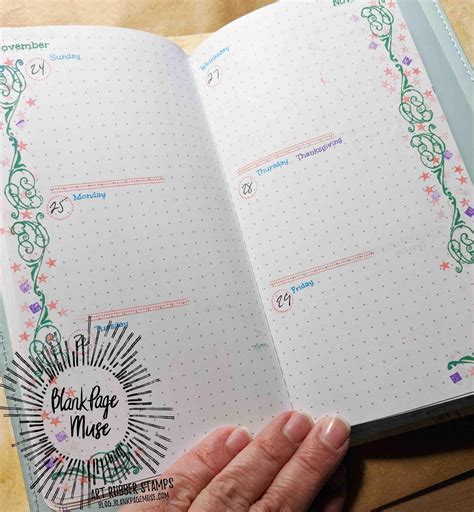 November
24 Sunday
25 Monday
Tuesday
Wednesday
27
Thursday, Thanksgiving
28
Friday
29
BlankPage
Muse
ART RUBBER STAMPS
BLOG.BLANKPAGEMUSE.COM